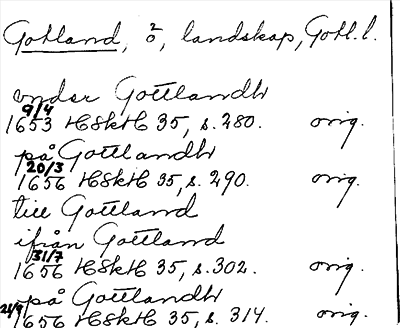 Gotland, ö, landskap, Gotl. l.
under Gottlandh
9/4
1653 HSkH 35, s. 280. orig.
på Gottlandh
20/3
1656 HSkH 35, s. 290. orig.
till Gottland
ifrån Gottland
31/7
1656 HSkH 35, s. 302. orig.
på Gottlandh
21/9
1656 HSkH 35, s. 314. orig.